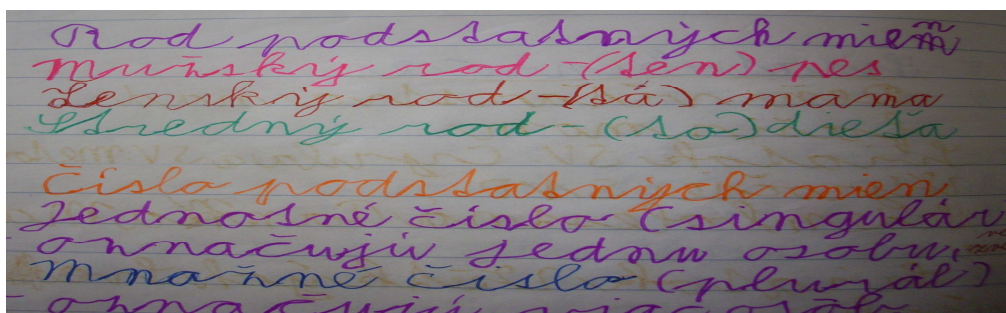 Rod podstatných mien
Mužský rod - (ten) pes
Ženský rod - (tá) mama
Stredný rod - (to) dieťa
Číslo podstatných mien
Jednotné číslo (singulár
označujú jednu osobu,
Množné číslo (plurál)
- označujú viac osôb